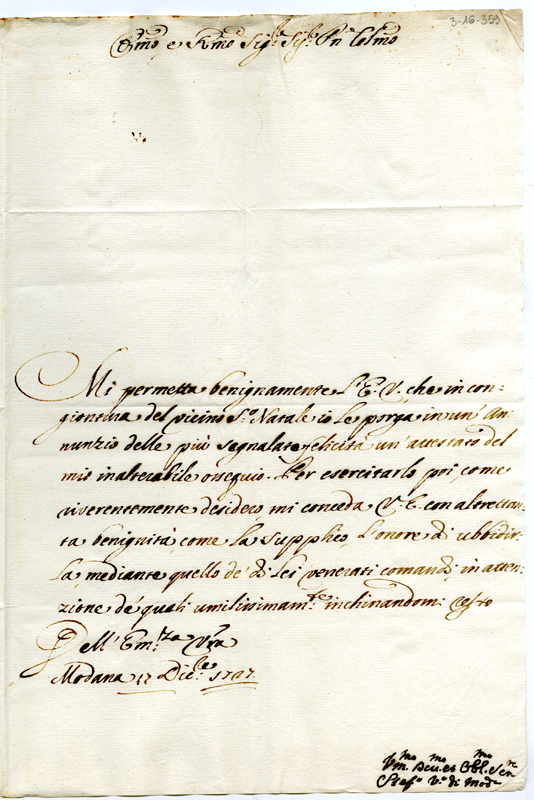 3-16-359
Em̃o e Rm̃o Sig.r Sig.r Pn̄e Col̃mo
Mi permetta benignamente l'E. V. che in con-
giontura del vicino S.o Natale io Le porga in un' An-
nunzio delle più segnalate felicità un' attestato del
mio inalterabile ossequio. Per esercitarlo poi, come
riverentemente desidero mi conceda V. E. con altrettan-
ta benignità, come la supplico, l'onore di ubbidir-
la mediante quello de' di Lei venerati comandi, in atten-
zione de' quali umilissimam.te inchinandomi resto
Dell' Em.za Vr̃a
Modana 17 Dic.re 1707.
Um.mo Dev.mo et Obl.mo Ser.re
Stef.o V.o di Mod.a